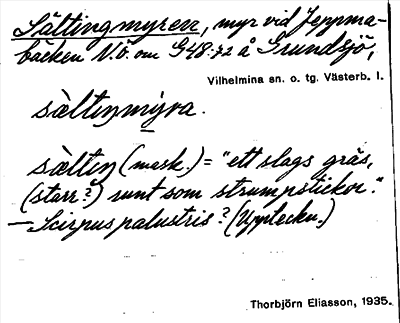 Sältingmyren, myr vid Jeppma-
bäcken N.Ö. om G48:72 å Grundsjö,
Vilhelmina sn. o. tg. Västerb. l.
sàltiŋmýra.
sàltiŋ (mask.) = "ett slags gräs,
(starr?) runt som strumpstickor."
— Scirpus palustris? (Uppteckn.)
Thorbjörn Eliasson, 1935.